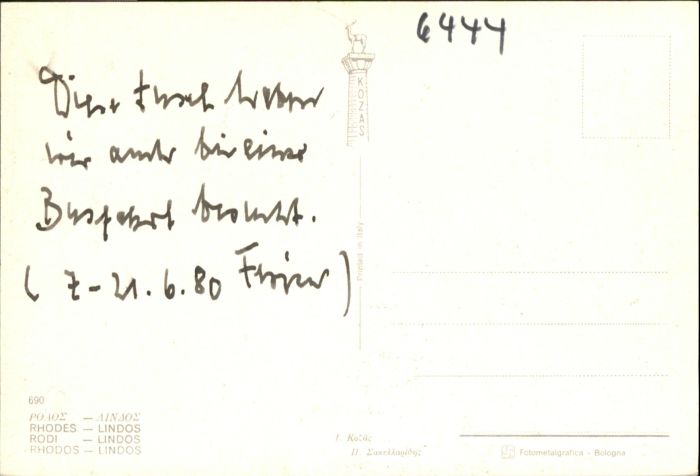 6444
KOZAS
Diese Insel haben
wir auch bei einer
Busfahrt besucht.
(7-21.6.80 Flöjer)
Printed in Italy
690
ΡΟΔΟΣ — ΛΙΝΔΟΣ
RHODES — LINDOS
RODI — LINDOS
RHODOS — LINDOS
Ι. Κοζᾶς
Π. Σακελλαρίδης
Fotometalgrafica - Bologna